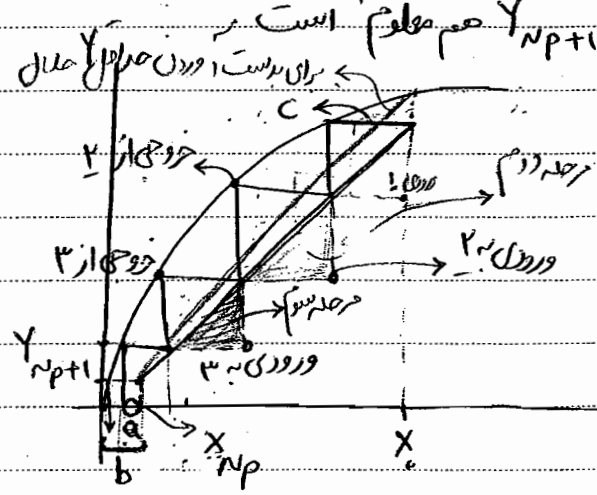 Y Np+1 هم معلوم است
برای بدست اوردن حداقل حلال
Y
C
خروجی از ۲
ورودی ۱
مرحله دوم
ورودی به ۲
خروجی از ۳
مرحله سوم
Y Np+1
ورودی به ۳
a
b
X Np
X۰